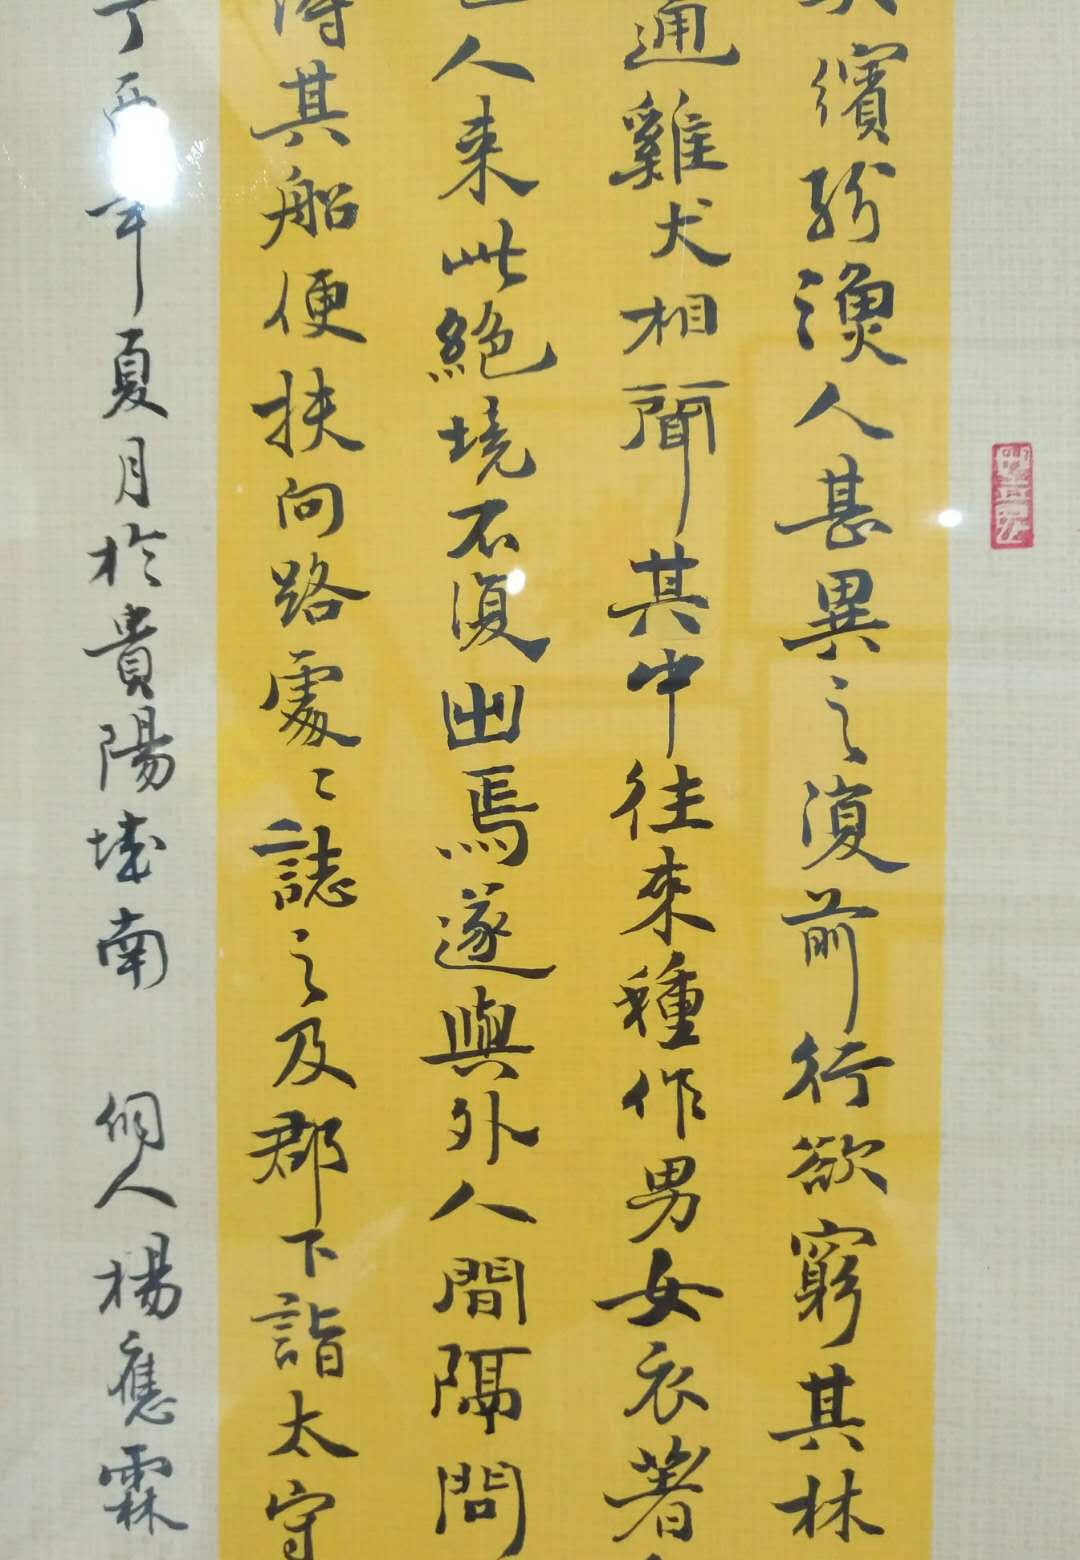 英繽紛漁人甚異之復前行欲窮其林
通雞犬相聞其中往來種作男女衣著
人來此絕境不復出焉遂與外人間隔問
得其船便扶向路處〻誌之及郡下詣太守
丁酉年夏月於貴陽城南 侗人楊應霖